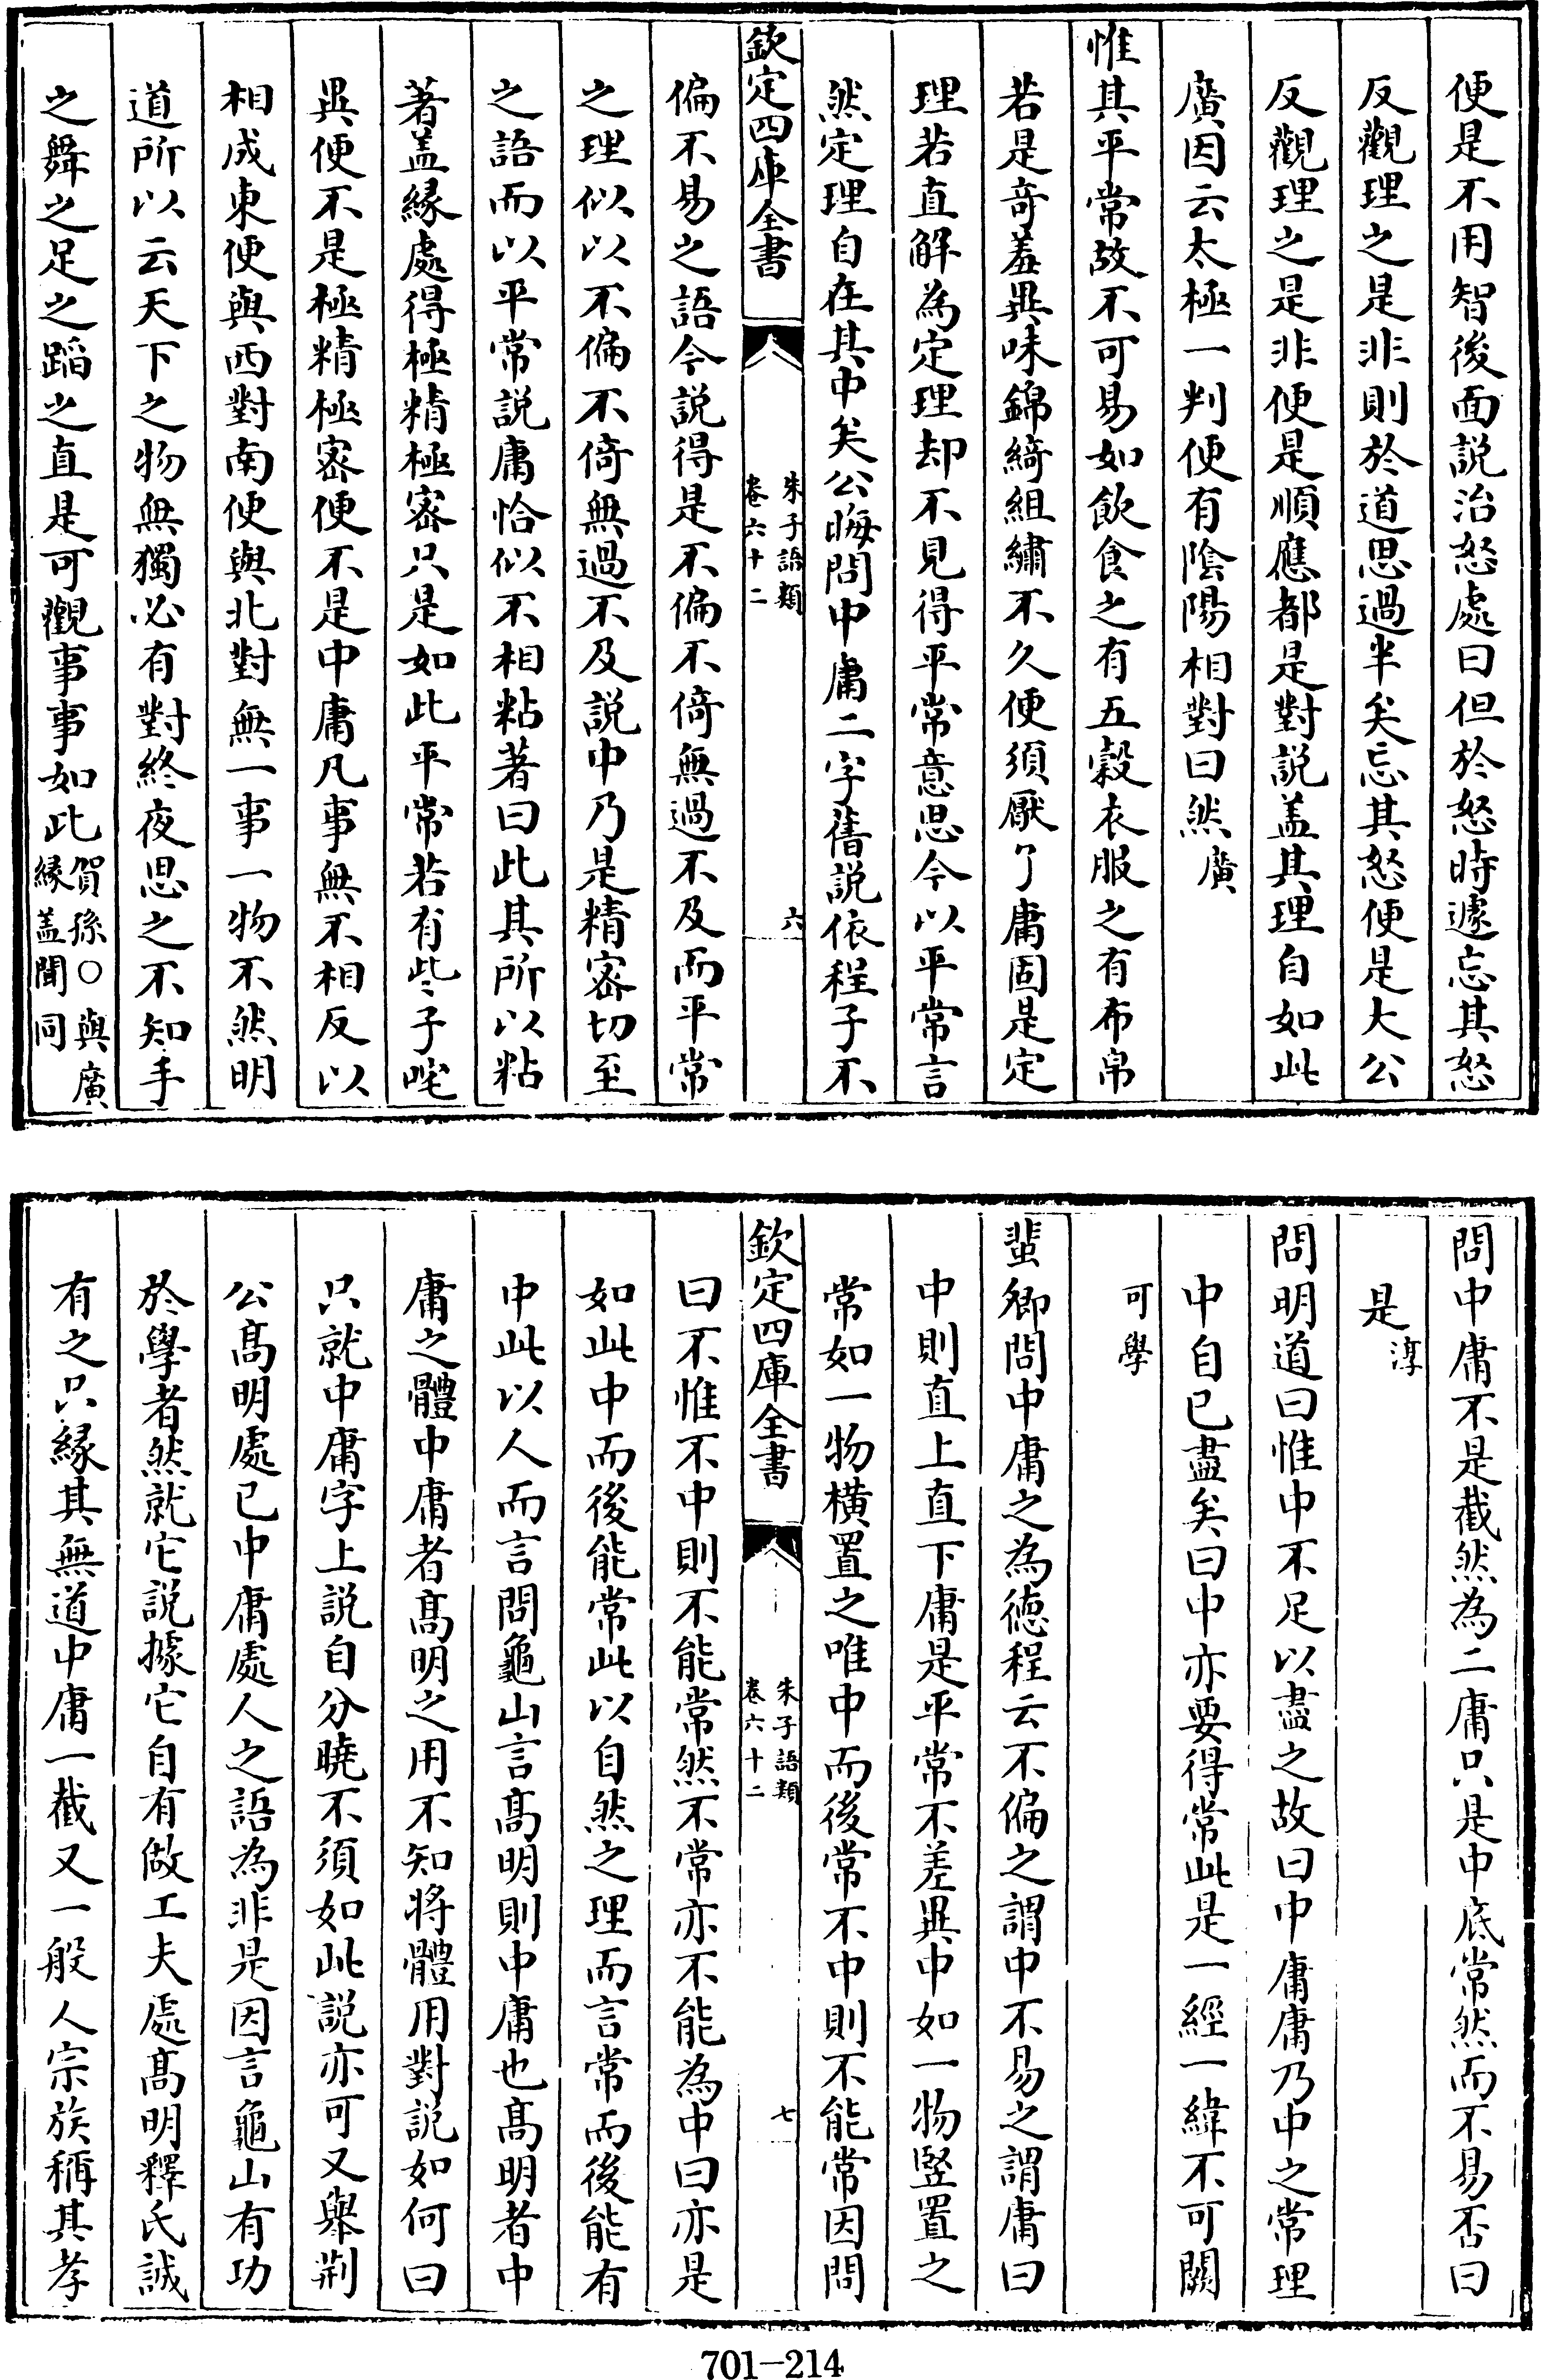 便是不用智後面説治怒處曰但於怒時遽忘其怒
反觀理之是非則於道思過半矣忘其怒便是大公
反觀理之是非便是順應都是對説盖其理自如此
廣因云太極一判便有陰陽相對曰然廣
惟其平常故不可易如飲食之有五穀衣服之有布帛
若是竒羞異味錦綺組繡不久便須厭了庸固是定
理若直解為定理却不見得平常意思今以平常言
然定理自在其中矣公晦問中庸二字舊説依程子不
欽定四庫全書
朱子語類
卷六十二
六
偏不易之語今説得是不偏不倚無過不及而平常
之理似以不偏不倚無過不及説中乃是精密切至
之語而以平常説庸恰似不相粘著曰此其所以粘
著盖緣處得極精極密只是如此平常若有些子咤
異便不是極精極密便不是中庸凡事無不相反以
相成東便與西對南便與北對無一事一物不然明
道所以云天下之物無獨必有對終夜思之不知手
之舞之足之蹈之直是可觀事事如此賀孫○與廣
緣盖聞同
問中庸不是截然為二庸只是中底常然而不易否曰
是淳
問明道曰惟中不足以盡之故曰中庸庸乃中之常理
中自已盡矣曰中亦要得常此是一經一緯不可闕
可學
蜚卿問中庸之為德程云不偏之謂中不易之謂庸曰
中則直上直下庸是平常不差異中如一物竪置之
常如一物橫置之唯中而後常不中則不能常因問
欽定四庫全書
朱子語類
卷六十二
七
曰不惟不中則不能常然不常亦不能為中曰亦是
如此中而後能常此以自然之理而言常而後能有
中此以人而言問龜山言髙明則中庸也髙明者中
庸之體中庸者髙明之用不知將體用對説如何曰
只就中庸字上説自分曉不須如此説亦可又舉荆
公髙明處已中庸處人之語為非是因言龜山有功
於學者然就它説據它自有做工夫處髙明釋氏誠
有之只緣其無道中庸一截又一般人宗族稱其孝
701—214